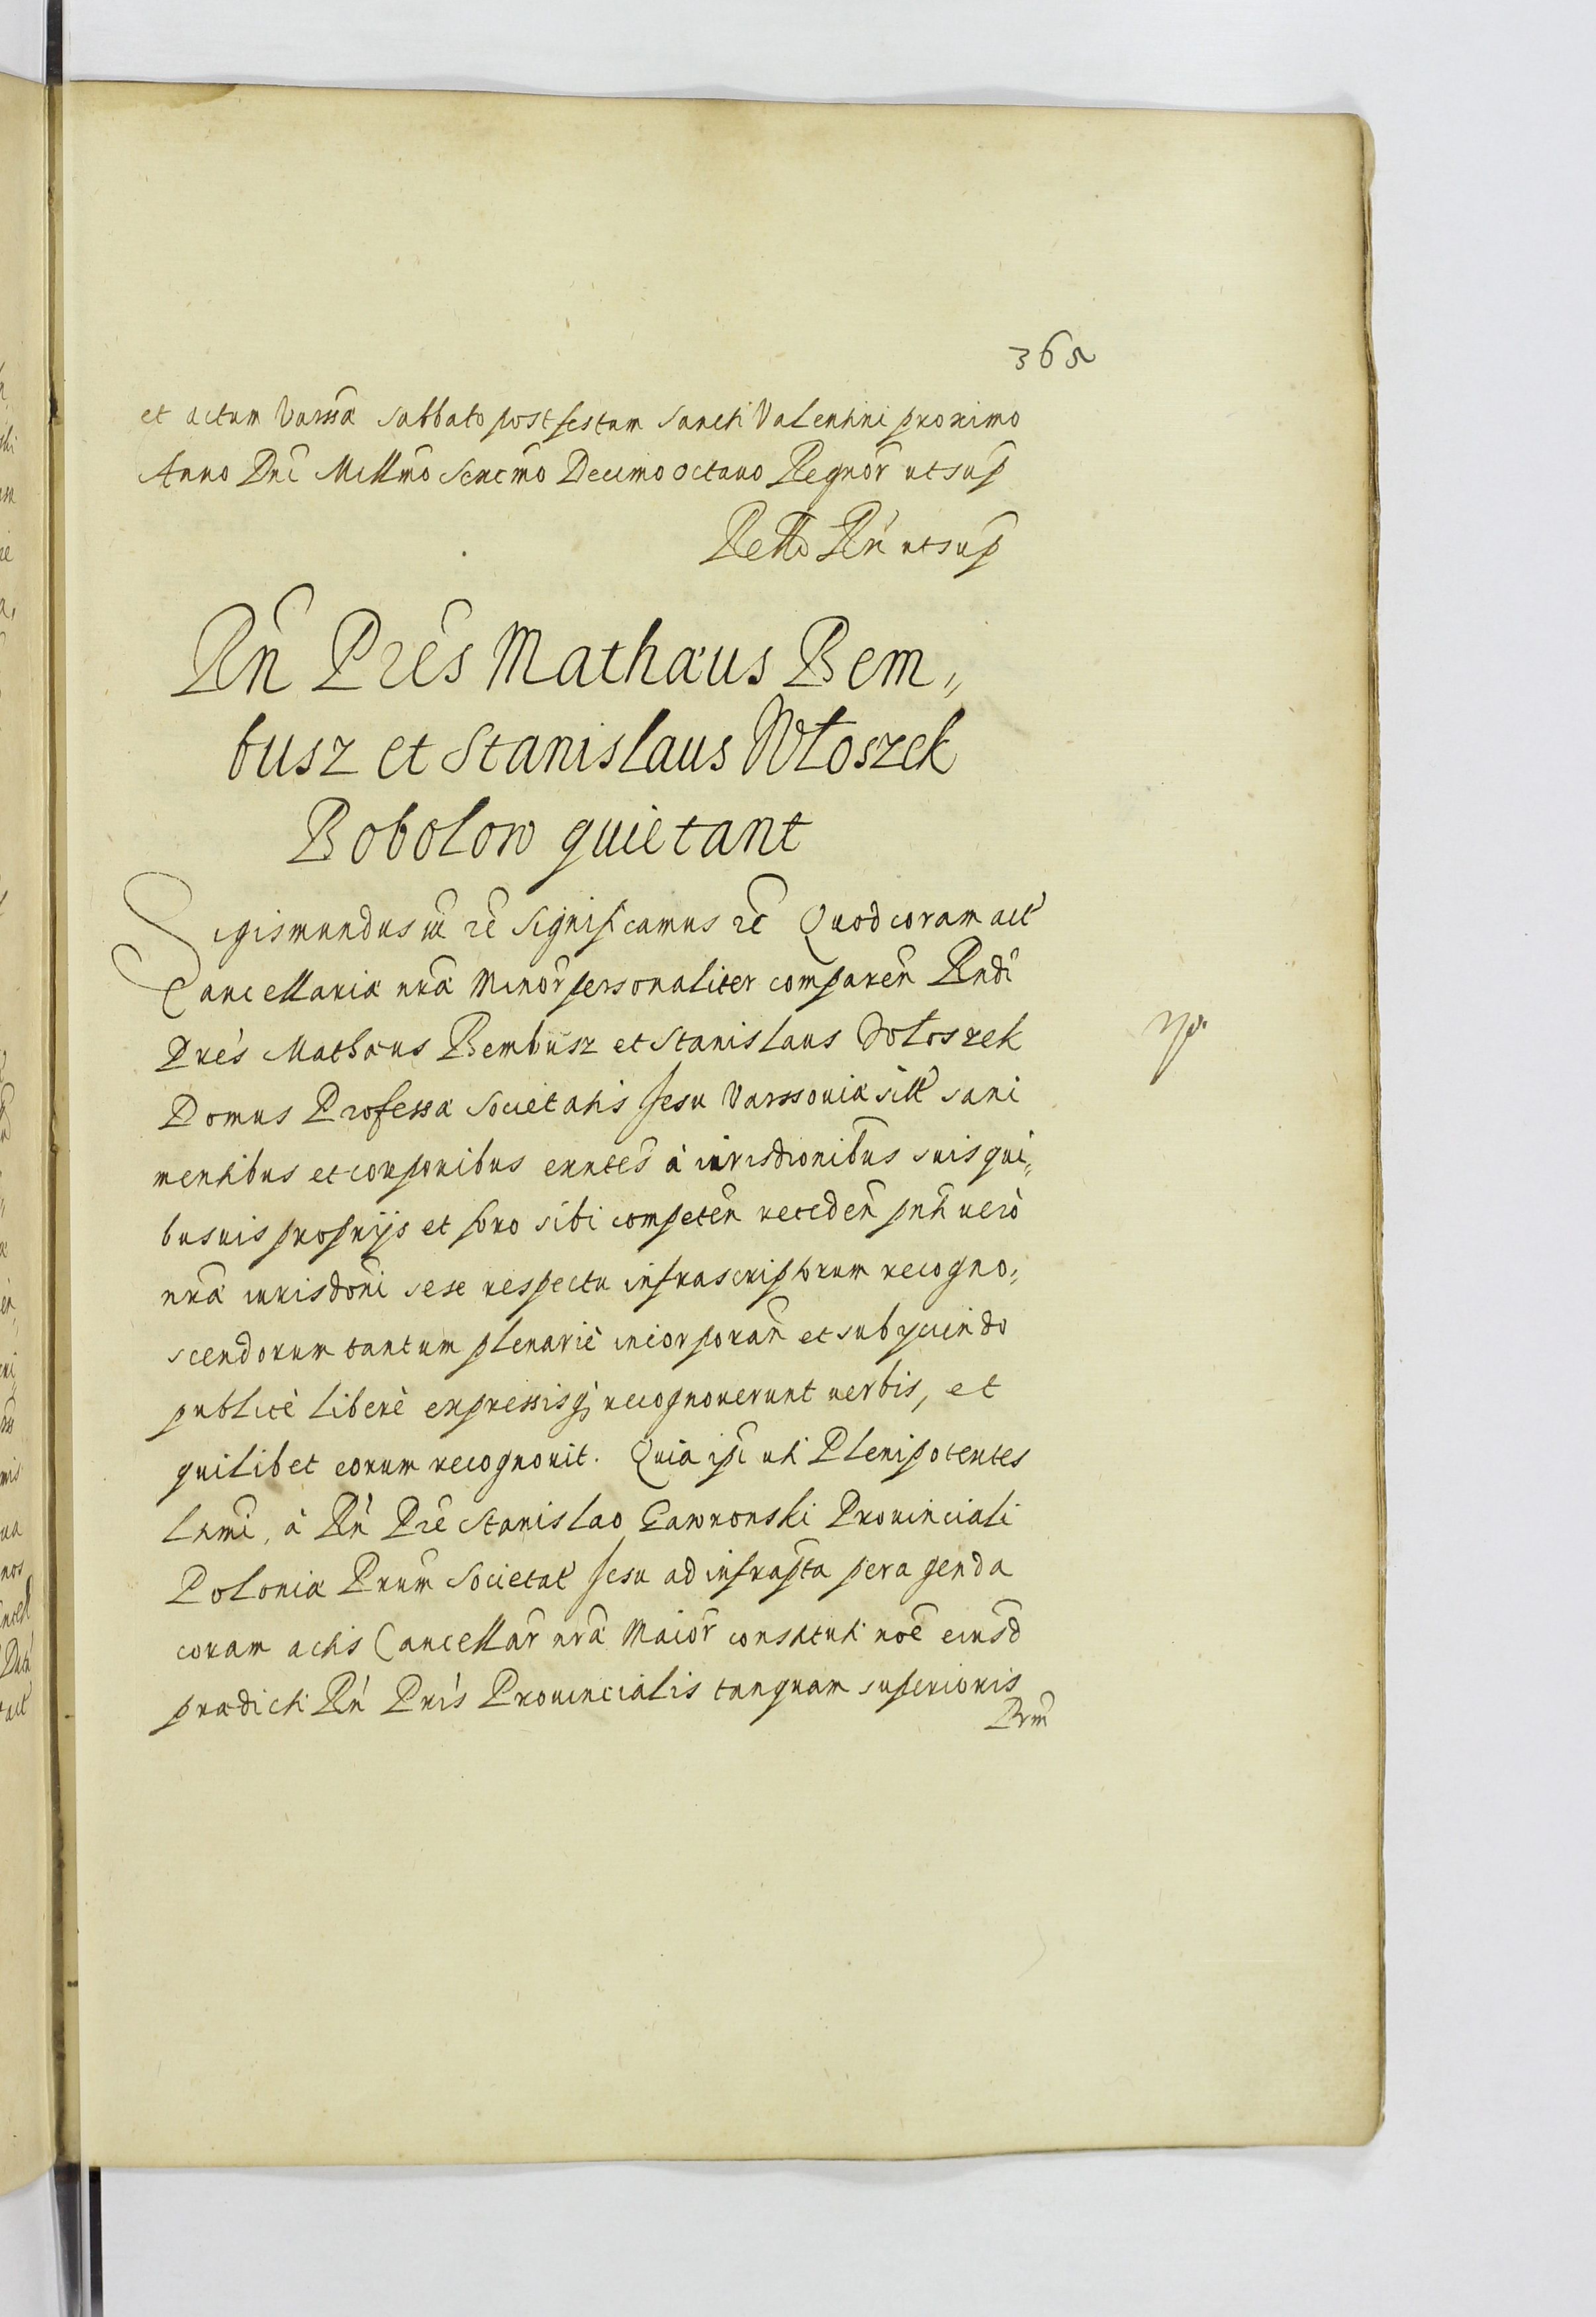 365
et actum Varssæ Sabbato post festum Sancti Valentini proximo
Anno Dni Millmo Sexcmo Decimo octauo Regnor ut sup
Retto Rn ut sup
Rn Pres Mathæus Bem„
busz et Stanislaus Włoszek
Bobolow quietant
Sigismundus etc Significamus etc Quod coram act
Cancellariæ nræ Minor personaliter comparen Rndi
Pres Mathæus Bembusz et Stanislaus Włoszek
Domus Professæ Societatis Jesu Varssouiæ sani
mentibus et corporibus exntes à iurisdionibus suis qui„
busuis proprijs et foro sibi competen receden pnti uerò
nræ iurisdoni sese respectu infrascriptorum recogno„
scendorum tantum plenariè incorporan et subyciendo
publicè liberè expressisq; recognouerunt uerbis, et
quilibet eorum recognouit. Quia ipi uti Plenipotentes
lnmi, à Rn Pre Stanislao Gawronski Prouinciali
Poloniæ Prum Societat Jesu ad infrapta peragenda
coram actis Cancellar nræ Maior constituti noe eiusd
prædicti Rn Pris Prouincialis tanquam superioris
Prm